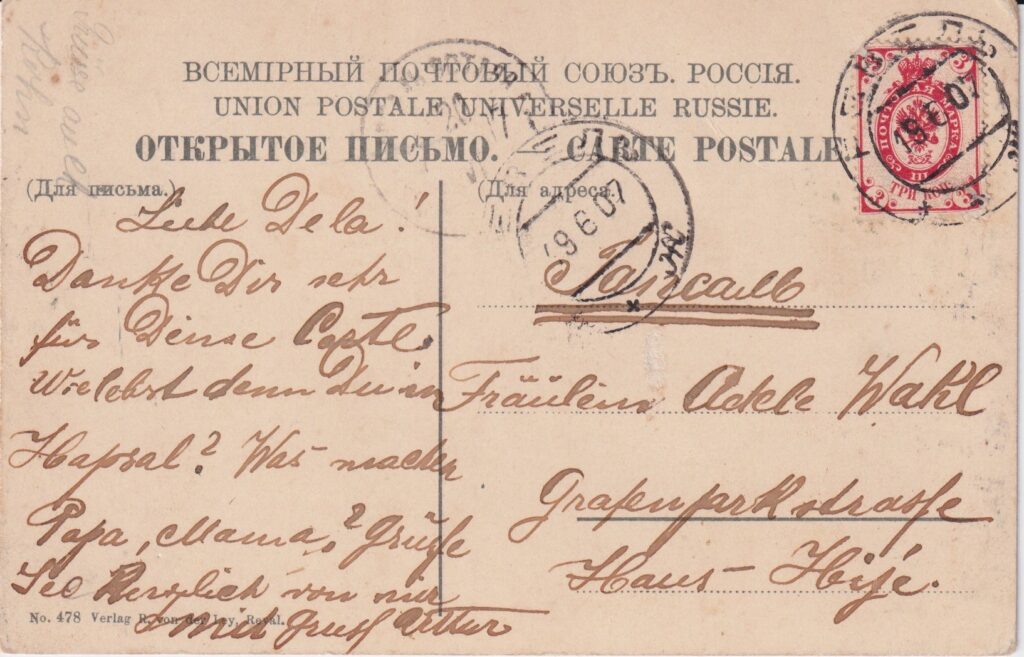 ВСЕМІРНЫЙ ПОЧТОВЫЙ СОЮЗЪ. РОССІЯ.
UNION POSTALE UNIVERSELLE RUSSIE.
ОТКРЫТОЕ ПИСЬМО. — CARTE POSTALE
(Для письма.)
Liebe Dela!
Danke Dir sehr
für Deine Carte.
Wie lebst denn Du in
Hapsal? Was machen
Papa, Mama? Grüße
Sie herzlich von mir
mit Gruss Arttur
No. 478 Verlag R. von der Ley, Reval.
(Для адреса.)
Гапсаль
Fräulein Adele Wahl
Grafenparkstrasse
Haus-
ПОЧТОВАЯ МАРКА
ТРИ КОП.
3
3
19 6 07
19 6 07